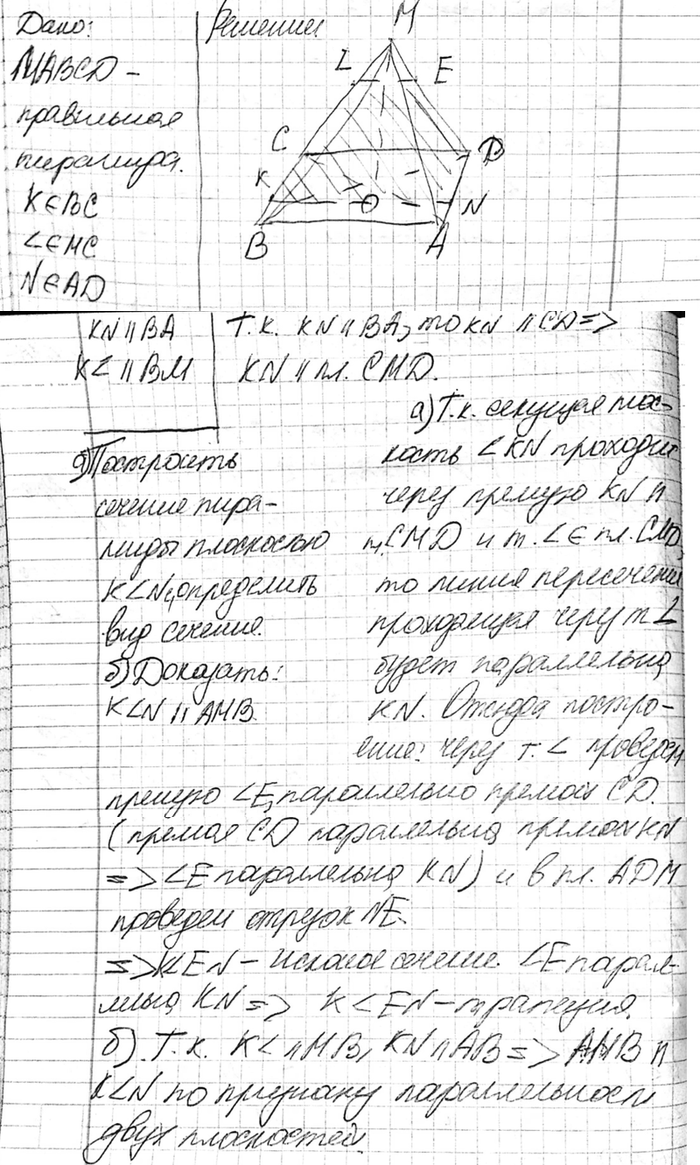 Дано:
MABCD –
правильная
пирамида.
K∈BC
L∈MC
N∈AD
Решение
M
L
E
C
D
K
O
N
B
A
KN || BA
KL || BM
а) Построить
сечение пира-
миды плоскостью
KLN, определить
вид сечения.
б) Доказать:
KLN || AMB
Т.к. KN || BA, то KN || CD =>
KN || пл. CMD.
а) Т.к. секущая плос-
кость LKN проходит
через прямую KN ||
пл. CMD и т. L ∈ пл. CMD,
то линия пересечения
проходящая через т. L
будет параллельна
KN. Отсюда постро-
ение: через т. L проведем
прямую LE, параллельно прямой CD.
(прямая CD параллельна прямой KN
=> LE параллельна KN) и в пл. ADM
проведем отрезок NE.
=> KLEN – искомое сечение. LE парал-
лельна KN => KLEN – трапеция.
б). Т.к. KL || MB, KN || AB => AMB ||
KLN по признаку параллельности
двух плоскостей.